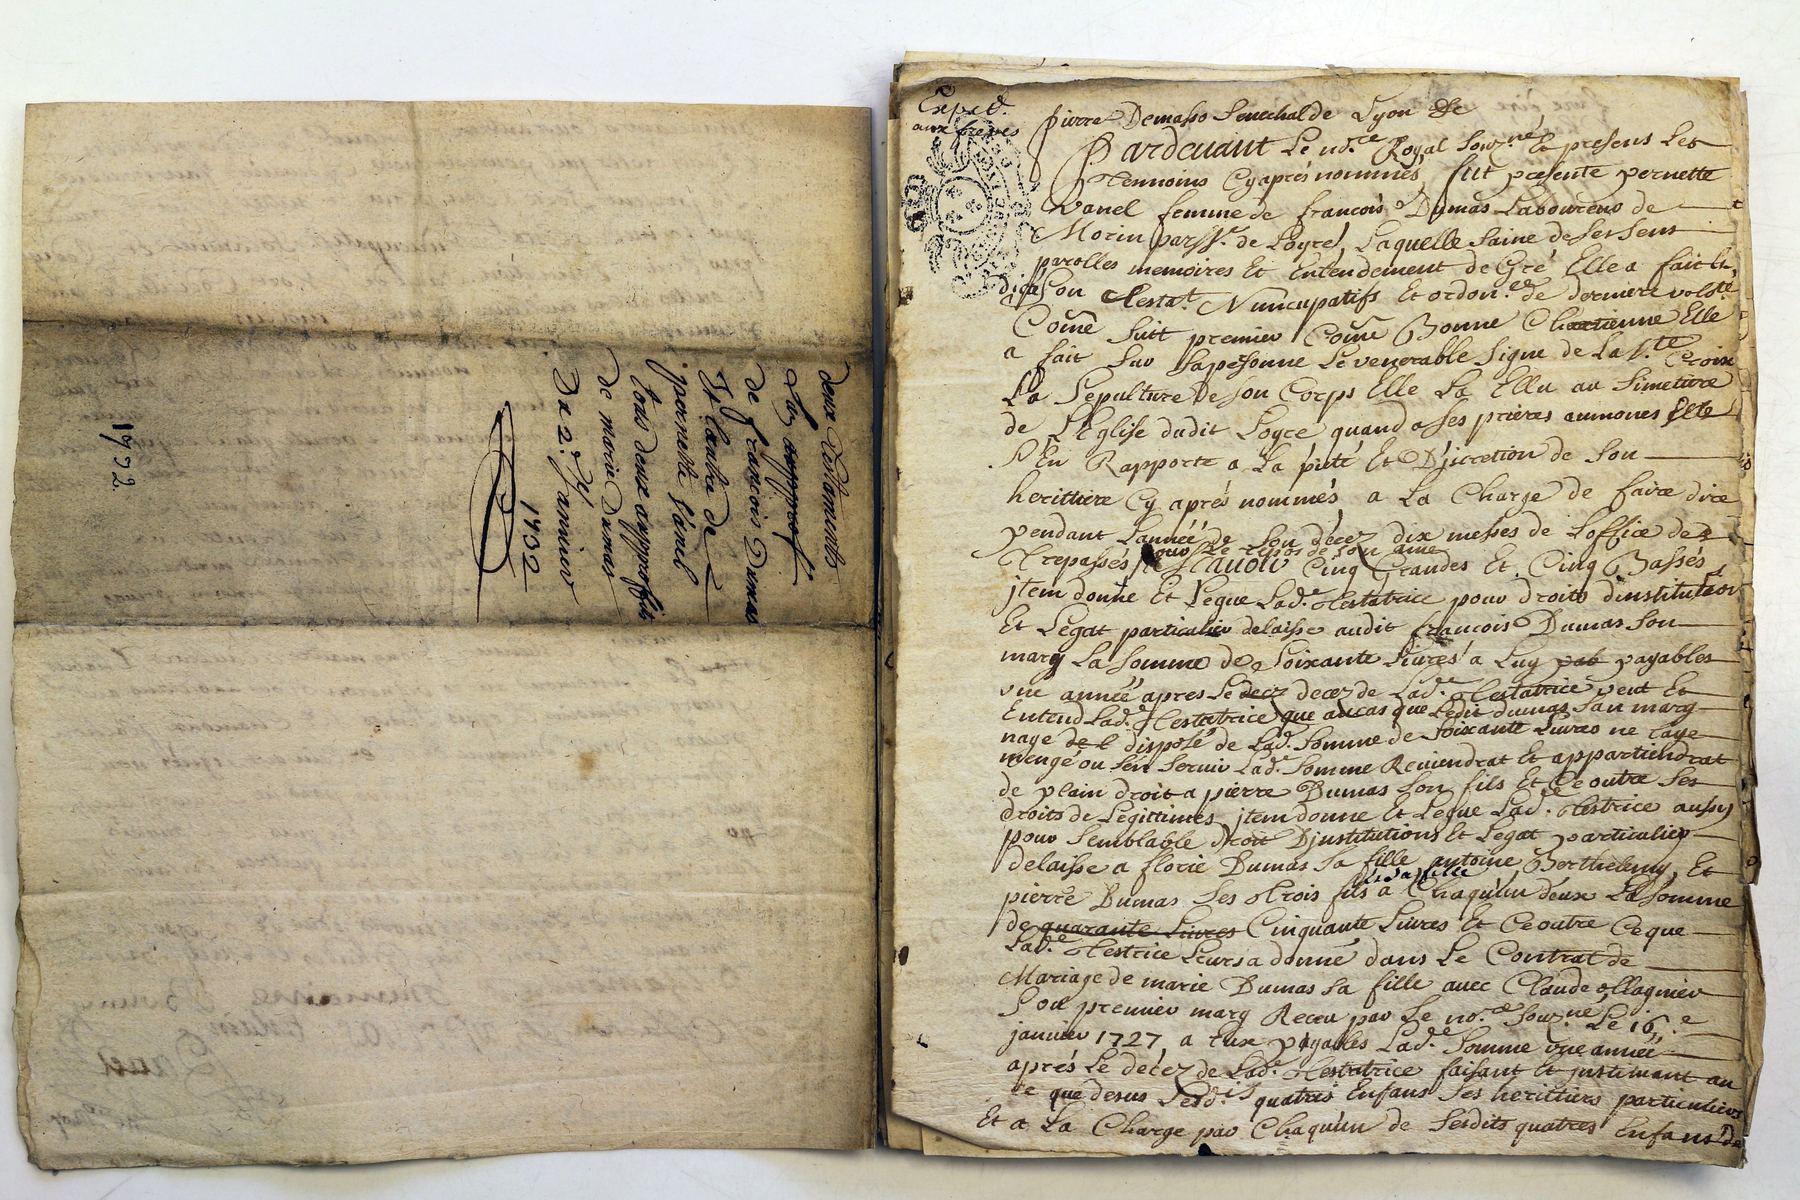 deux testaments
Lun approuvé
de francois Dumas
Et lautre de
pernette Vanel
tous deux approuvés
de marie Dumas
Du 2.e Janvier
1732
1732.
Exped.
aux freres
pierre Demasso Senechal de Lyon
Pardevant Le no.re Royal souz.né Et presens Les
Temoins Cy aprés nommés, fut presente pernette
Vanel femme de francois Dumas Laboureur de
Morin parr.e de Loyre, Laquelle saine de ses sens
parolles memoires Et Entendement de Gré Elle a fait Et
dicté son testat. Nuncupatifs Et ordon.ce de derniere vol.té
Come suit premier Come Bonne Chretienne Elle
a fait sur sa personne Le venerable signe de La s.te Croix
La Sepulture de son Corps Elle La Ellu au simetiere
de L'Eglise dudit Loyre quand a ses prieres aumones Elle
s'En Rapporte a La pieté Et Discretion de son
herittiere Cy aprés nommés a La Charge de faire dire
pendant L'année de son décez dix messes de Loffice des
pour Le repos de son ame
Trepassés scavoir Cinq Grandes Et Cinq Bassés
jtem donne Et Legue Lad.e Testatrice pour droits dinstitution
Et Legat particulier delaisse audit francois Dumas son
mary La somme de soixante Livres a Luy pab payables
une année apres Le decez decez de Lad.e Testatrice veut Et
Entend Lad.e Testatrice que au cas que Ledit dumas son mary
naye de l disposé de Lad.e somme de soixante Livres ne Laye
mengé ou sen servir Lad.e somme Reviendrat Et appartiendrat
de plain droit a pierre Dumas son fils Et Ce outre ses
droits de Legittimes, jtem donne Et Legue Lad.e testrice aussy
pour semblable droit Djnstitutions Et Legat particulier
delaisse a florie Dumas sa fille antoine, Berthelemy, Et
pierre Dumas ses trois fils Et sa fille a Chaqu'un deux La somme
de quarante Livres Cinquante Livres Et Ce outre Ce que
Lad.e Testrice Leurs a donné dans Le Contrat de
Mariage de marie Dumas sa fille avec Claude ollagnier
son premier mary Receu par Le no.re souz.né Le 16.e
janvier 1727, a Eux payables Lad.e somme une année
aprés Le decez de Lad.e Testatrice faisant Et justituant au
ce que desus sesd.is quatres Enfans ses herittiers particuliers
Et a La Charge par Chaqu'un de sesdits quatres Enfans de